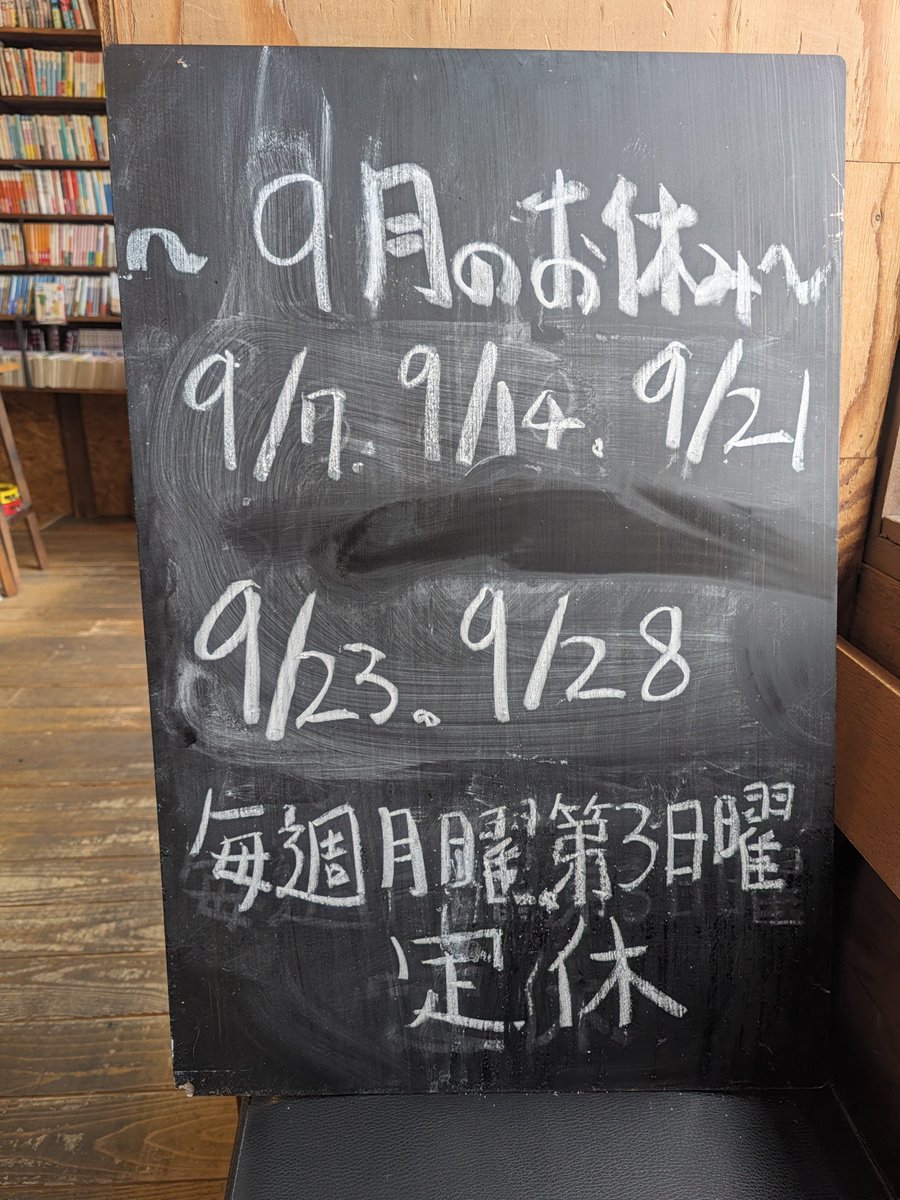 ～9月のお休み～
9/7.9/14.9/21
9/23。9/28
毎週月曜、第3日曜
定休